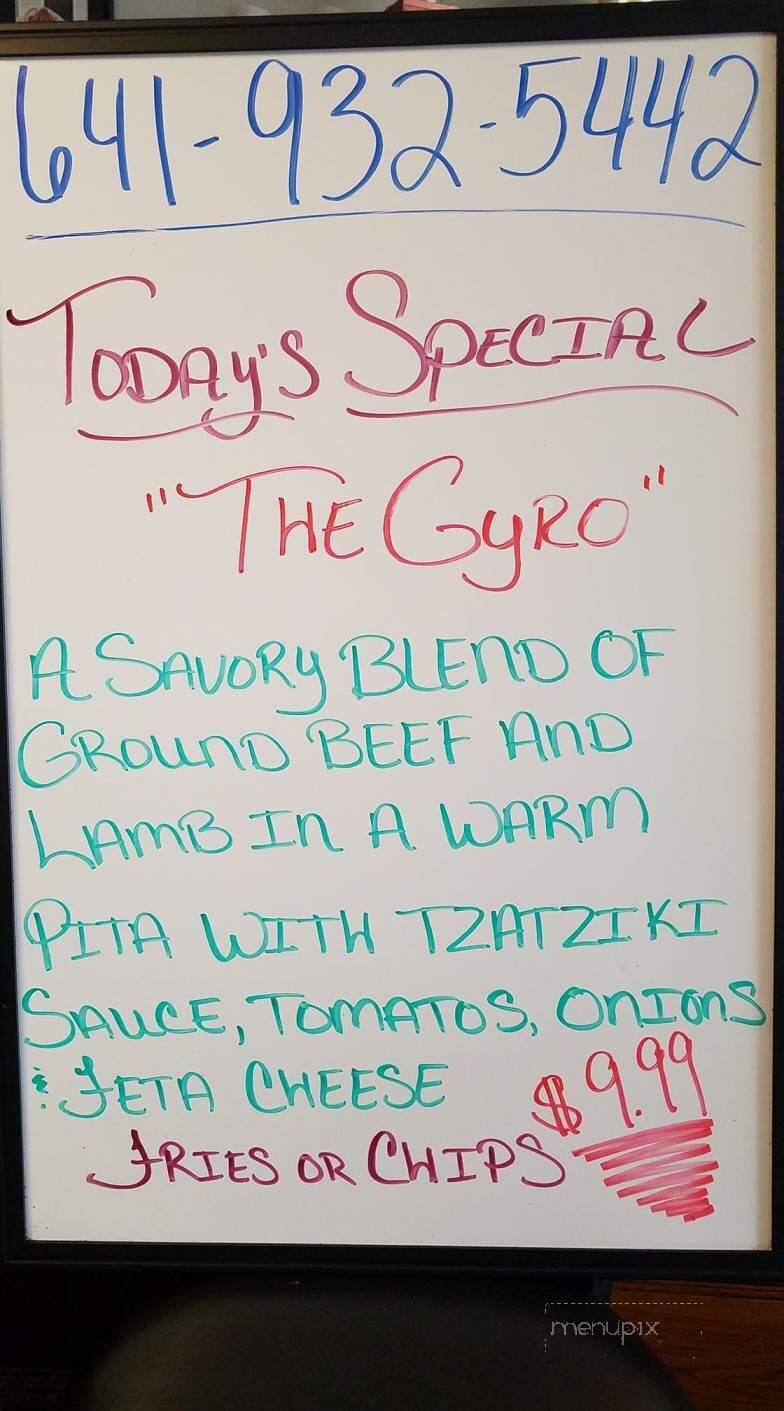 641-932-5442
TODAy'S SPECIAL
"THE GyRO"
A SAVORy BLEND OF
GROUND BEEF AND
LAMB IN A WARM
PITA WITH TZATZIKI
SAUCE, TOMATOS, ONIONS
& FETA CHEESE
$9.99
FRIES OR CHIPS
menupix